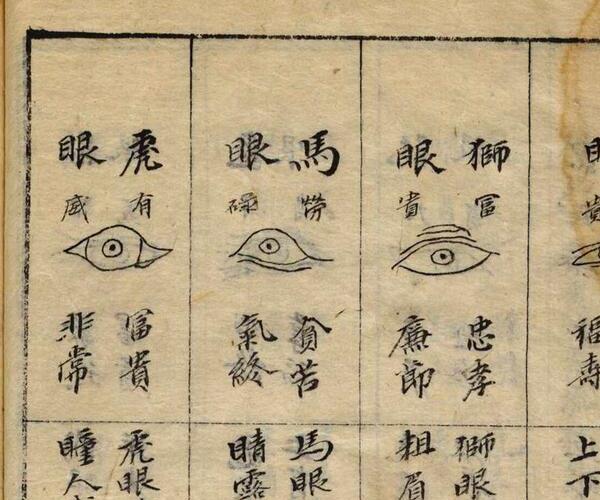 貴
福壽
上下
獅眼
富貴
忠孝
廉節
獅眼
粗眉
馬眼
勞碌
貧苦
氣終
馬眼
睛露
虎眼
有威
富貴
非常
虎眼
瞳人